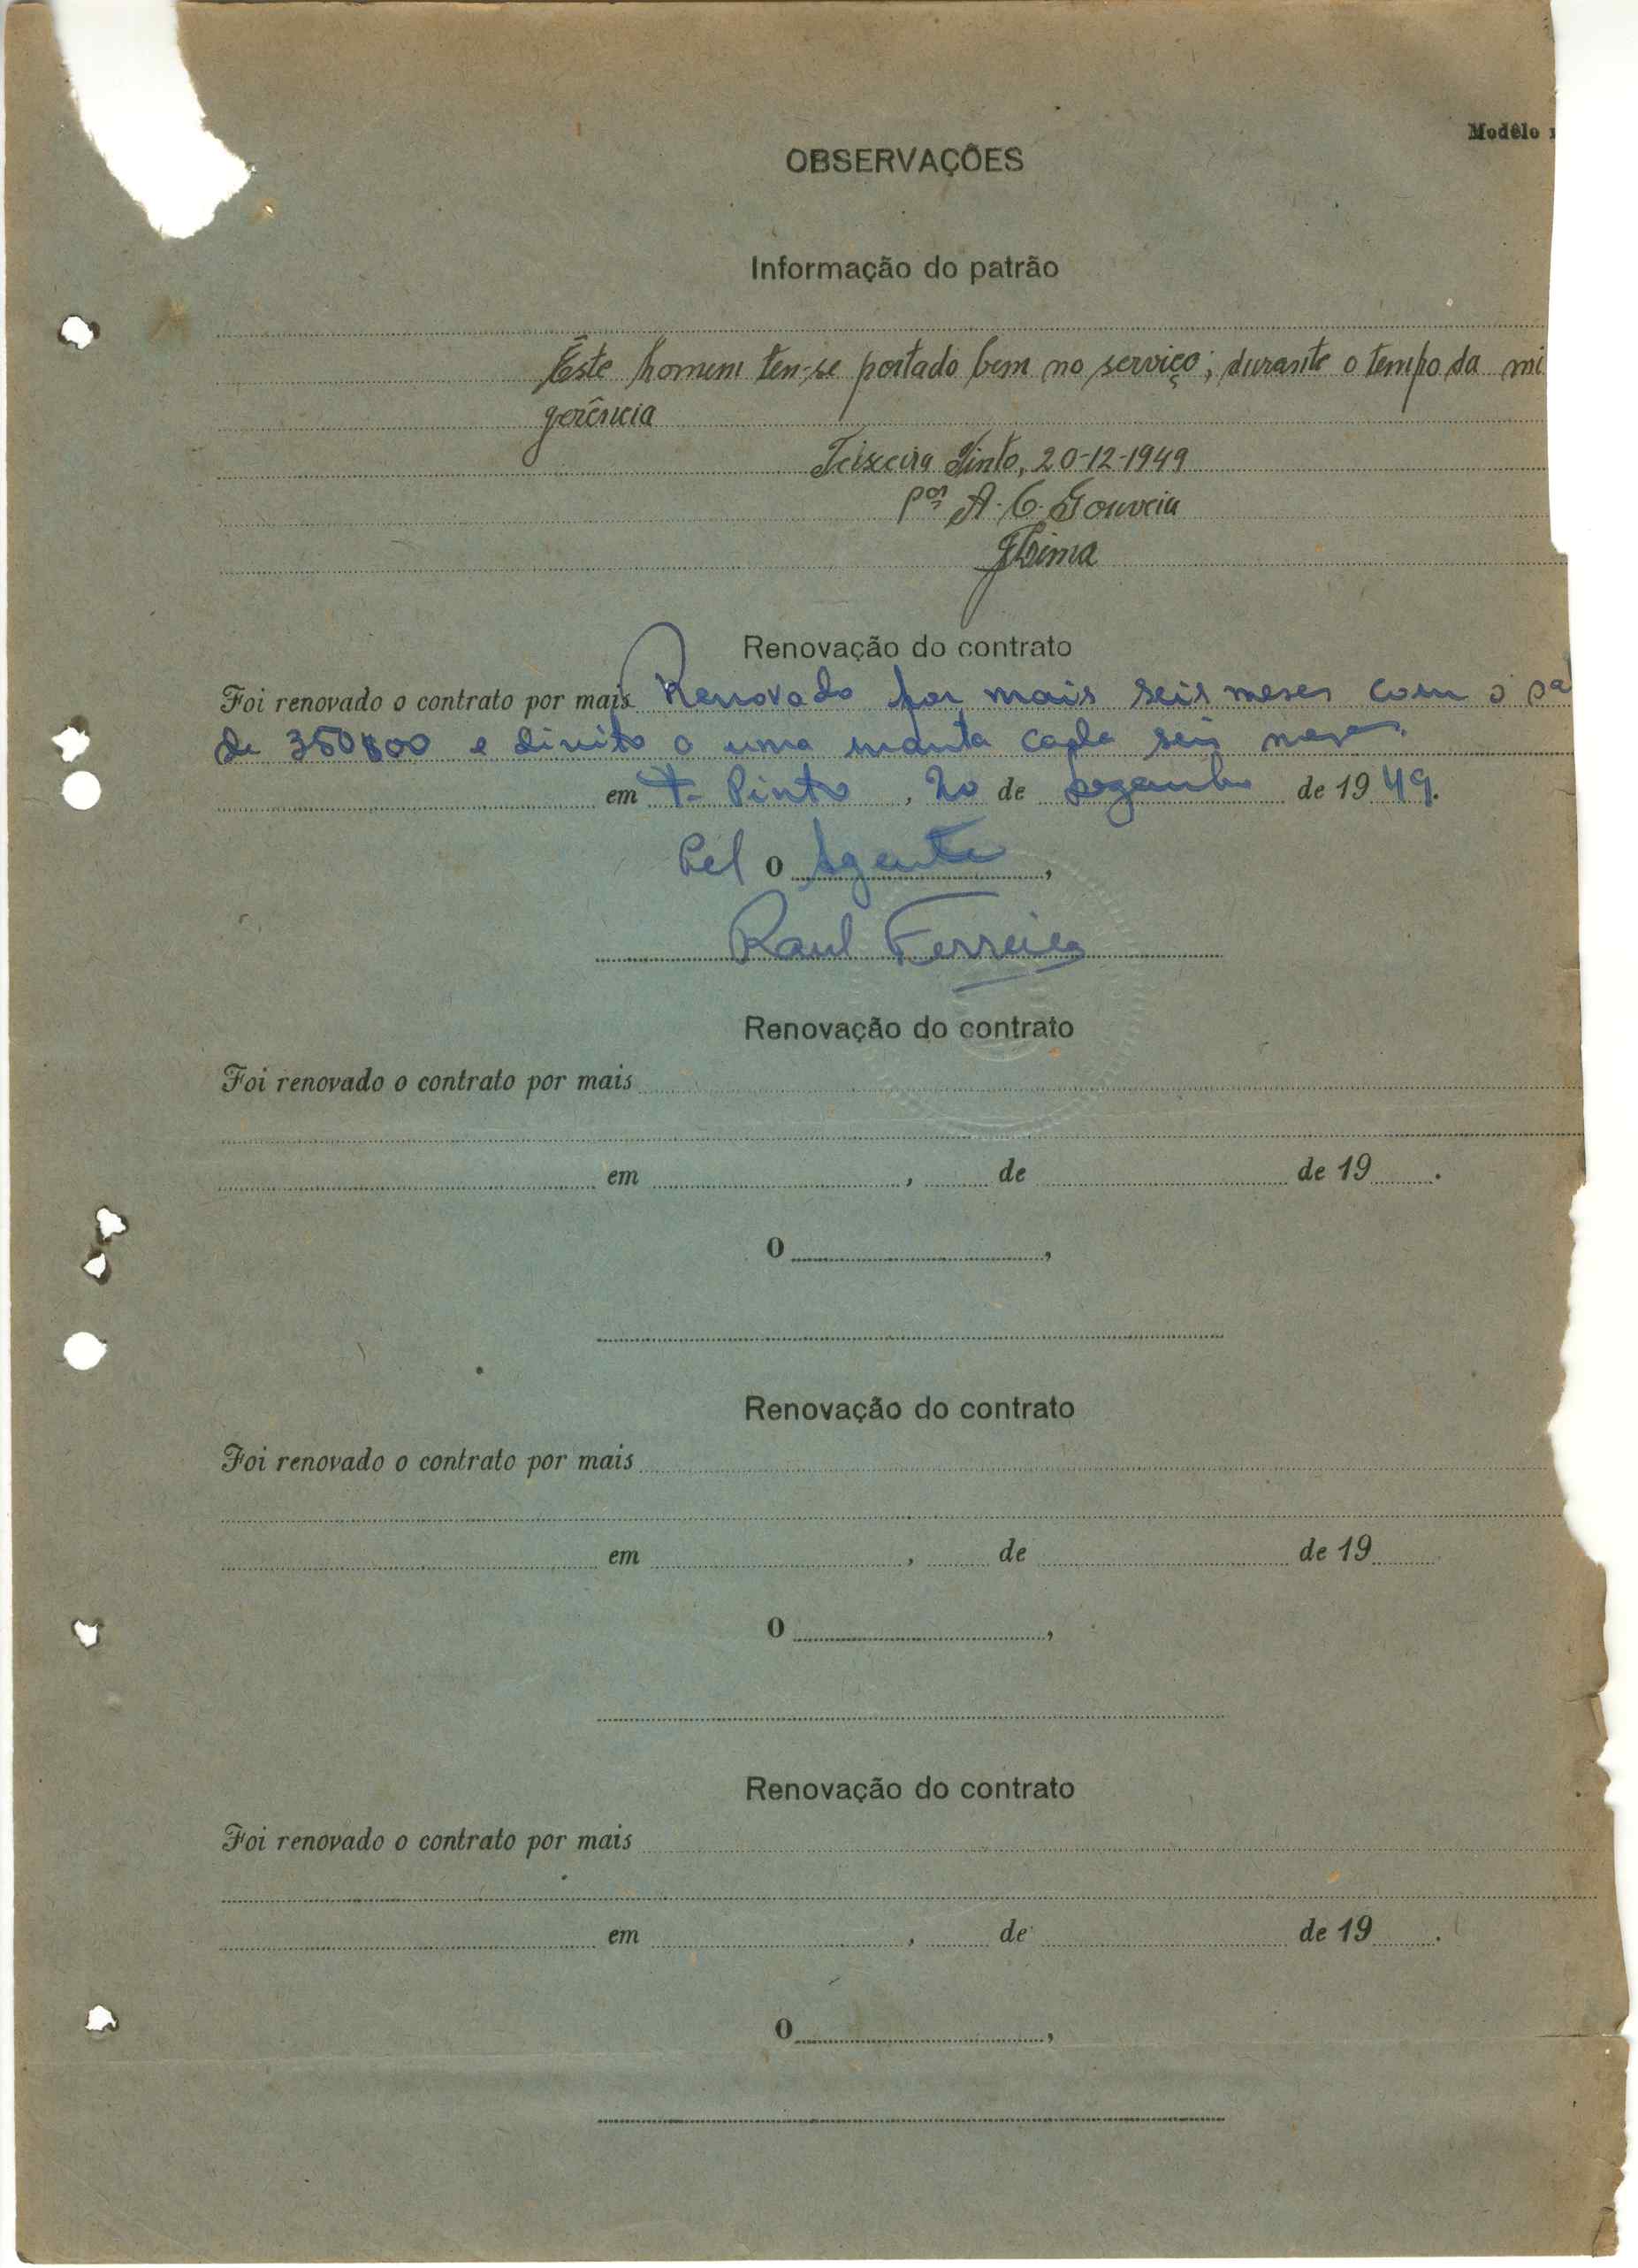 Modêlo
OBSERVAÇÕES
Informação do patrão
Êste homem tem-se portado bem no serviço; durante o tempo da mi
gerência
Teixeira Pinto, 20-12-1949
por A. C. Gouveia
Lima
Renovação do contrato
Foi renovado o contrato por mais Renovado por mais seis meses com o
de 350$00 e direito a uma manta cada seis meses.
em T. Pinto, 20 de Dezembro de 1949.
Pel o Agente,
Raul Ferreira
Renovação do contrato
Foi renovado o contrato por mais
em , de de 19 .
O ,
Renovação do contrato
Foi renovado o contrato por mais
em , de de 19
O ,
Renovação do contrato
Foi renovado o contrato por mais
em , de de 19 .
O ,